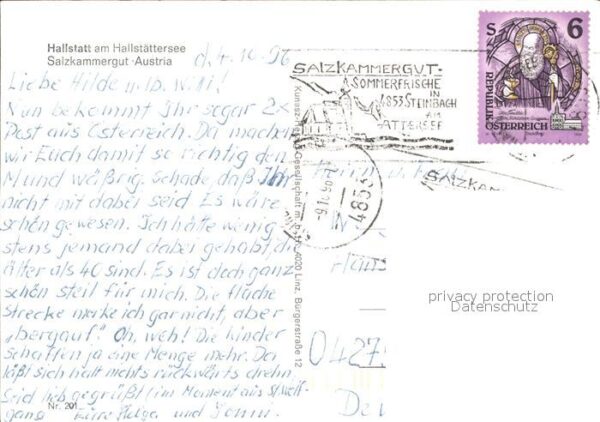 Hallstatt am Hallstättersee
Salzkammergut - Austria
d. 4. 10. 96
Liebe Hilde u. lb. Willi!
Nun bekommt Ihr sogar 2x
Post aus Österreich. Da machen
wir Euch damit so richtig den
Mund wäßrig. Schade, daß Ihr
nicht mit dabei seid Es wäre
schön gewesen. Ich hätte wenig
stens jemand dabei gehabt, die
älter als 40 sind. Es ist doch ganz
schön steil für mich. Die flache
Strecke merke ich gar nicht, aber
„bergauf." Oh, weh! Die Kinder
schaffen ja eine Menge mehr. Da
läßt sich halt nichts rückwärts drehn.
Seid lieb gegrüßt (im Moment aus St. Wolf-
gang Eure Helga und
Nr. 201
4020 Linz, Bürgerstraße 12
SALZKAMMERGUT-
SOMMERFRISCHE
IN
4853 STEINBACH
AM
ATTERSEE
4853
SALZKAM
S 6
REPUBLIK
ÖSTERREICH
Herrn u.
0427
privacy protection
Datenschutz